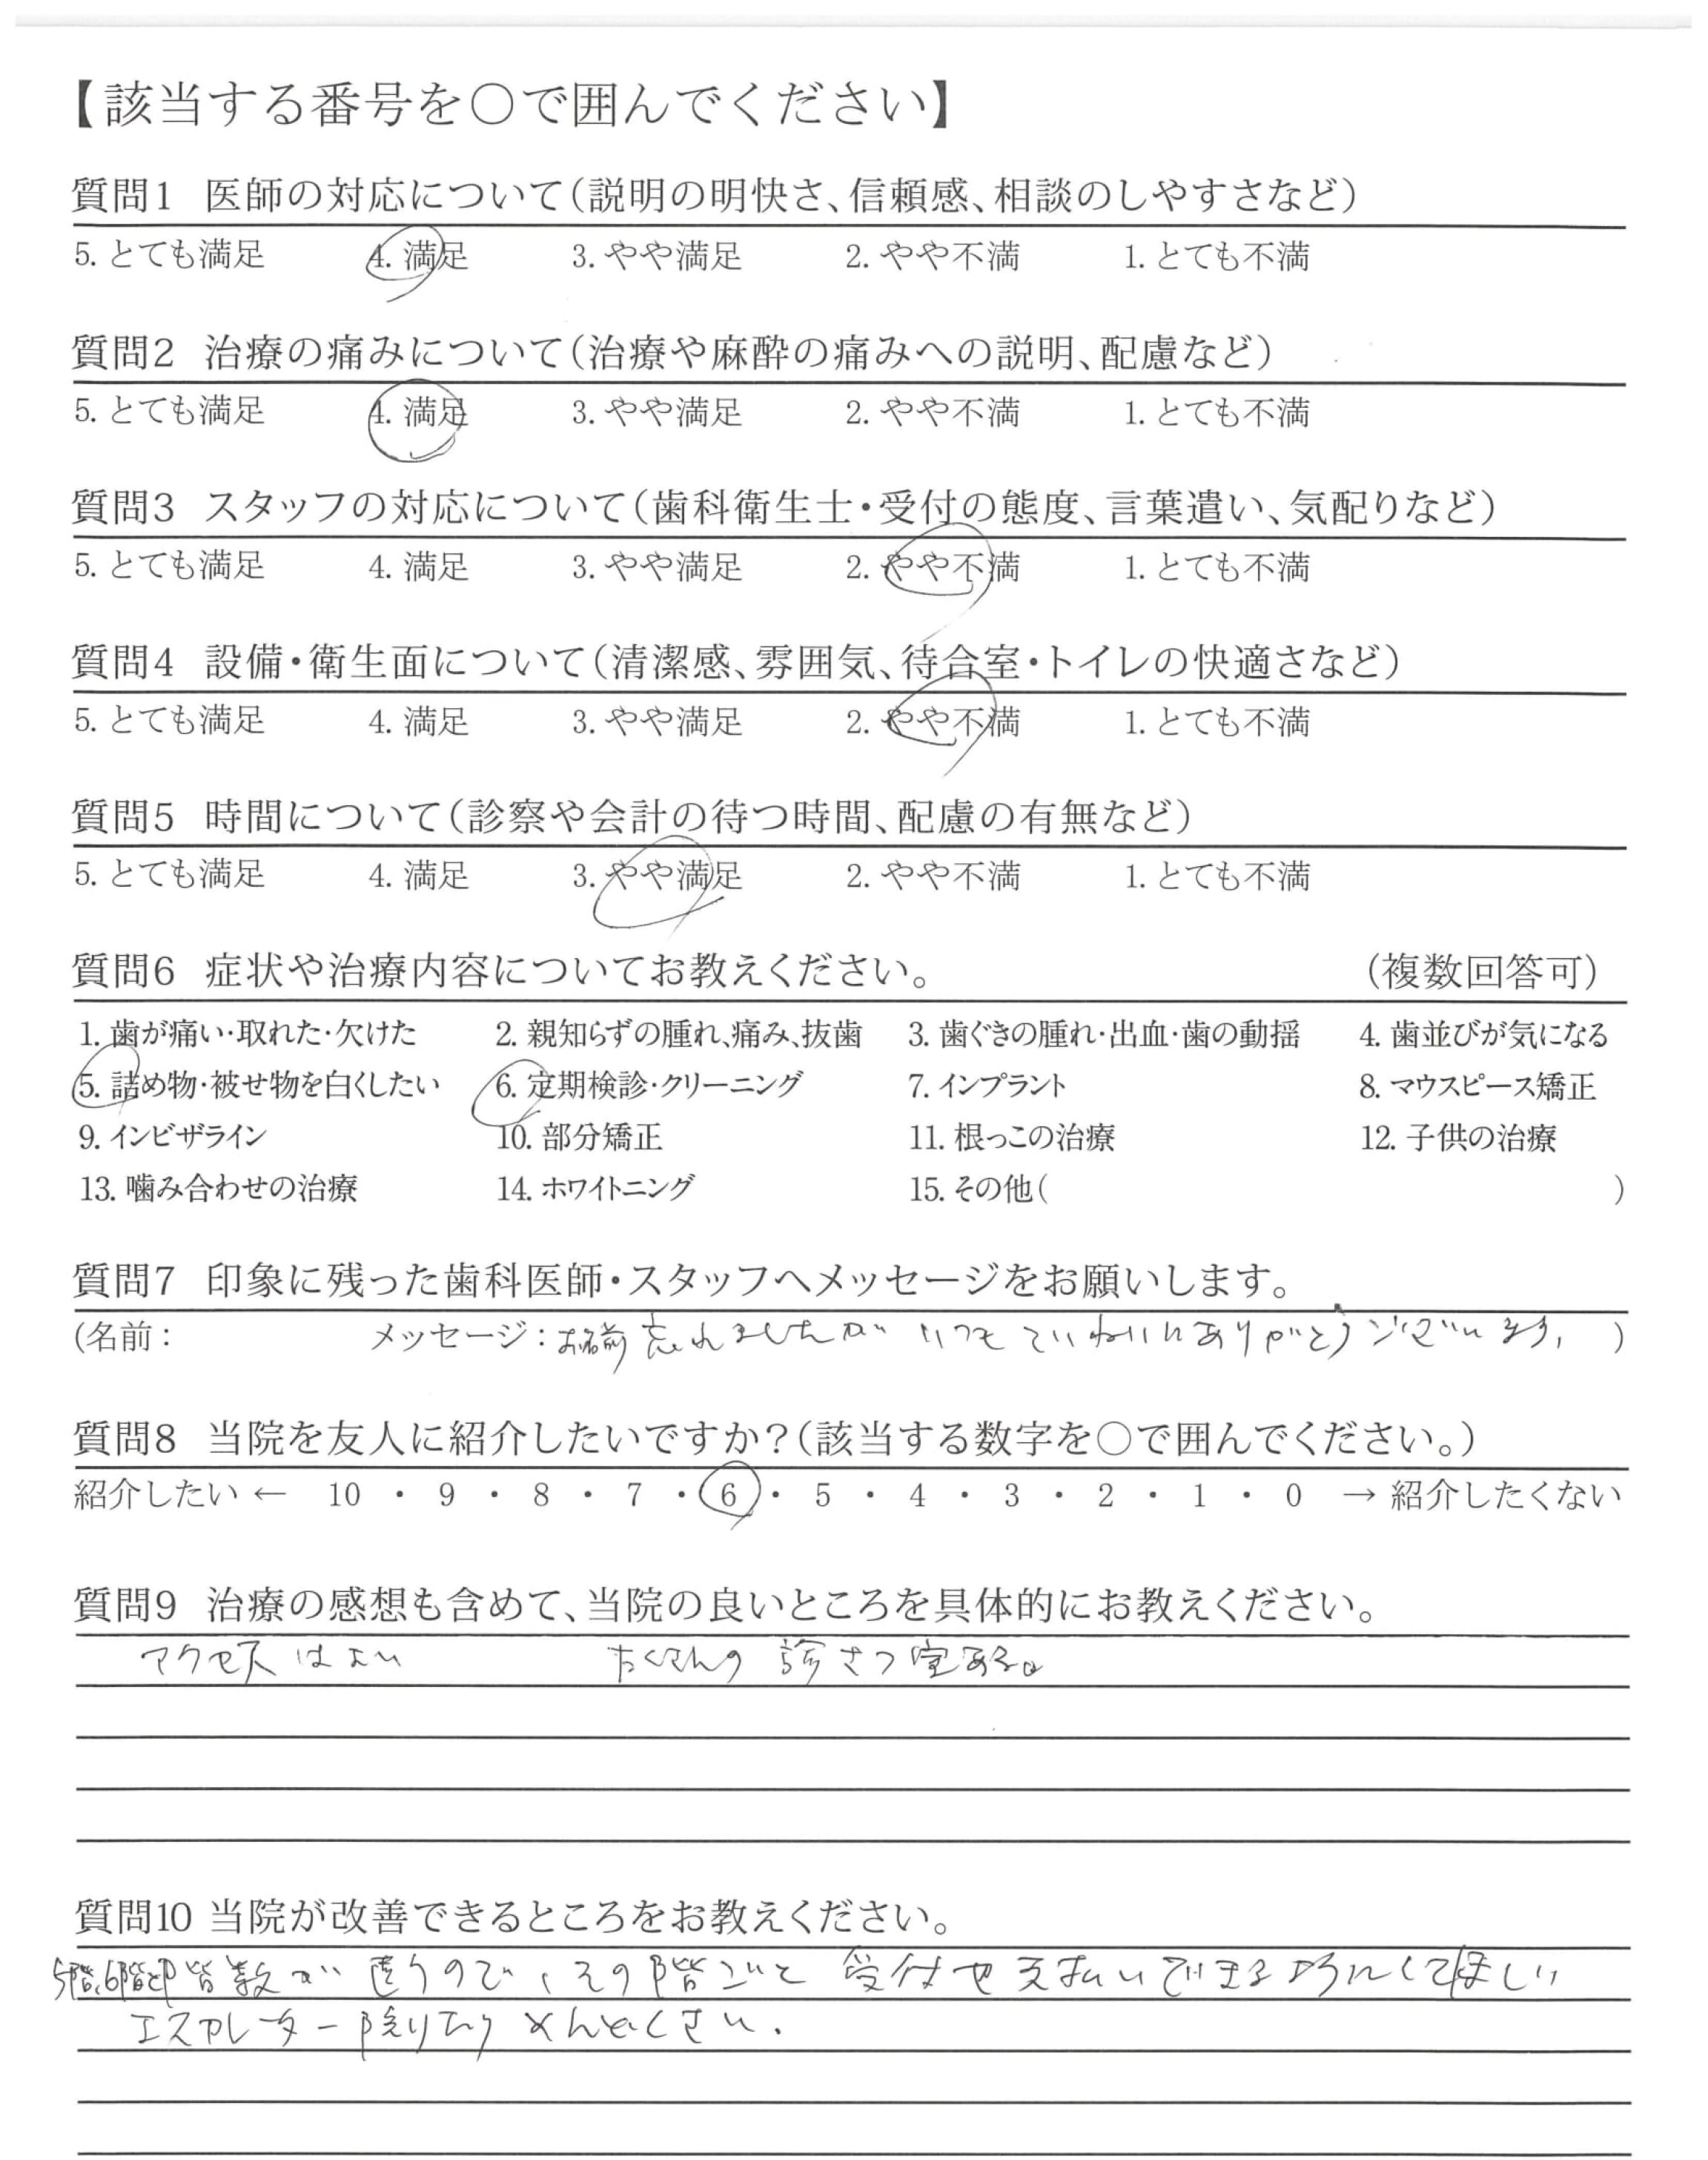 【該当する番号を○で囲んでください】
質問1 医師の対応について(説明の明快さ、信頼感、相談のしやすさなど)
5. とても満足 4. 満足 3. やや満足 2. やや不満 1. とても不満
質問2 治療の痛みについて(治療や麻酔の痛みへの説明、配慮など)
5. とても満足 4. 満足 3. やや満足 2. やや不満 1. とても不満
質問3 スタッフの対応について(歯科衛生士・受付の態度、言葉遣い、気配りなど)
5. とても満足 4. 満足 3. やや満足 2. やや不満 1. とても不満
質問4 設備・衛生面について(清潔感、雰囲気、待合室・トイレの快適さなど)
5. とても満足 4. 満足 3. やや満足 2. やや不満 1. とても不満
質問5 時間について(診察や会計の待つ時間、配慮の有無など)
5. とても満足 4. 満足 3. やや満足 2. やや不満 1. とても不満
質問6 症状や治療内容についてお教えください。 (複数回答可)
1. 歯が痛い・取れた・欠けた 2. 親知らずの腫れ、痛み、抜歯 3. 歯ぐきの腫れ・出血・歯の動揺 4. 歯並びが気になる
5. 詰め物・被せ物を白くしたい 6. 定期検診・クリーニング 7. インプラント 8. マウスピース矯正
9. インビザライン 10. 部分矯正 11. 根っこの治療 12. 子供の治療
13. 噛み合わせの治療 14. ホワイトニング 15. その他( )
質問7 印象に残った歯科医師・スタッフへメッセージをお願いします。
(名前: メッセージ:お名前忘れましたが いつもていねいにありがとうございます, )
質問8 当院を友人に紹介したいですか?(該当する数字を○で囲んでください。)
紹介したい ← 10 ・ 9 ・ 8 ・ 7 ・ 6 ・ 5 ・ 4 ・ 3 ・ 2 ・ 1 ・ 0 → 紹介したくない
質問9 治療の感想も含めて、当院の良いところを具体的にお教えください。
アクセスはよい たくさんの 診さつ室ある。
質問10 当院が改善できるところをお教えください。
5階、6階と階数が違うので、その階ごと 受付や支払いできるようにしてほしい
エスカレーター降りたり めんどくさい.